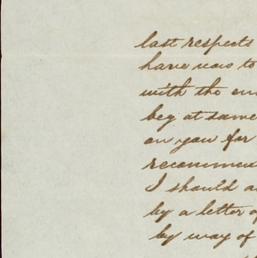 last respects
have now to
with the en
beg at same
on you for
recommen
I should a
by a letter o
by way of